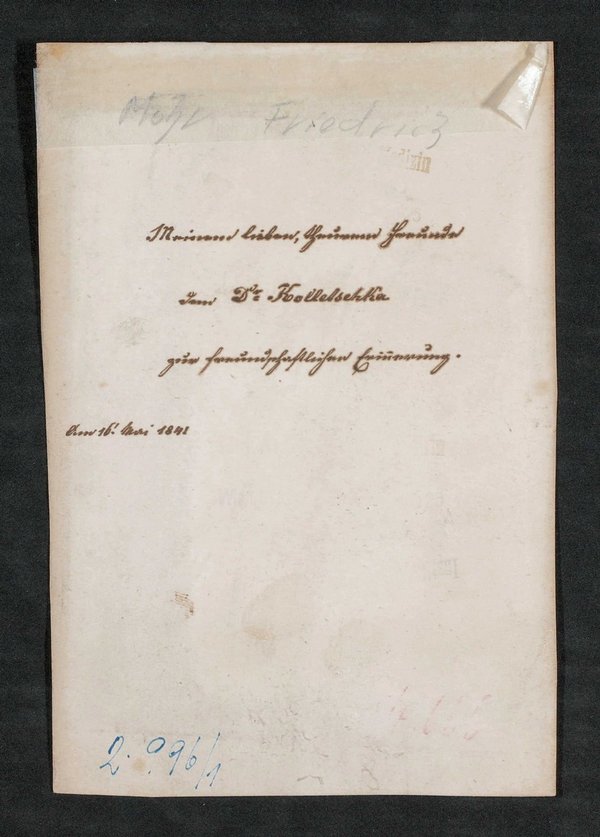 Mohs Friedrich
Meinem lieben, theurem Freunde
dem Dr. Kolletschka
zur freundschaftlichen Erinnerung.
Am 16t Mai 1841